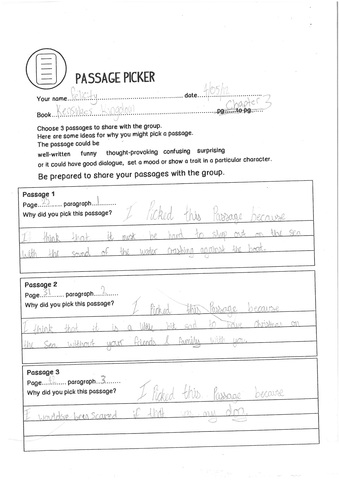 PASSAGE PICKER
Your name Felicity date
Book Kensuke's Kingdom pg Chapter 3 to pg
Choose 3 passages to share with the group.
Here are some ideas for why you might pick a passage.
The passage could be
well-written funny thought-provoking confusing surprising
or it could have good dialogue, set a mood or show a trait in a particular character.
Be prepared to share your passages with the group.
Passage 1
Page 31 paragraph 1
Why did you pick this passage? I Picked this Passage because
I think that it must be hard to sleep out on the sea
with the sound of the water crashing against the boat.
Passage 2
Page 31 paragraph 2
Why did you pick this passage? I Picked this Passage because
I think that it is a little bit sad to have christmas on
the sea without your friends & family with you.
Passage 3
Page paragraph 3
Why did you pick this passage? I Picked this Passage because
I scared if that my dog